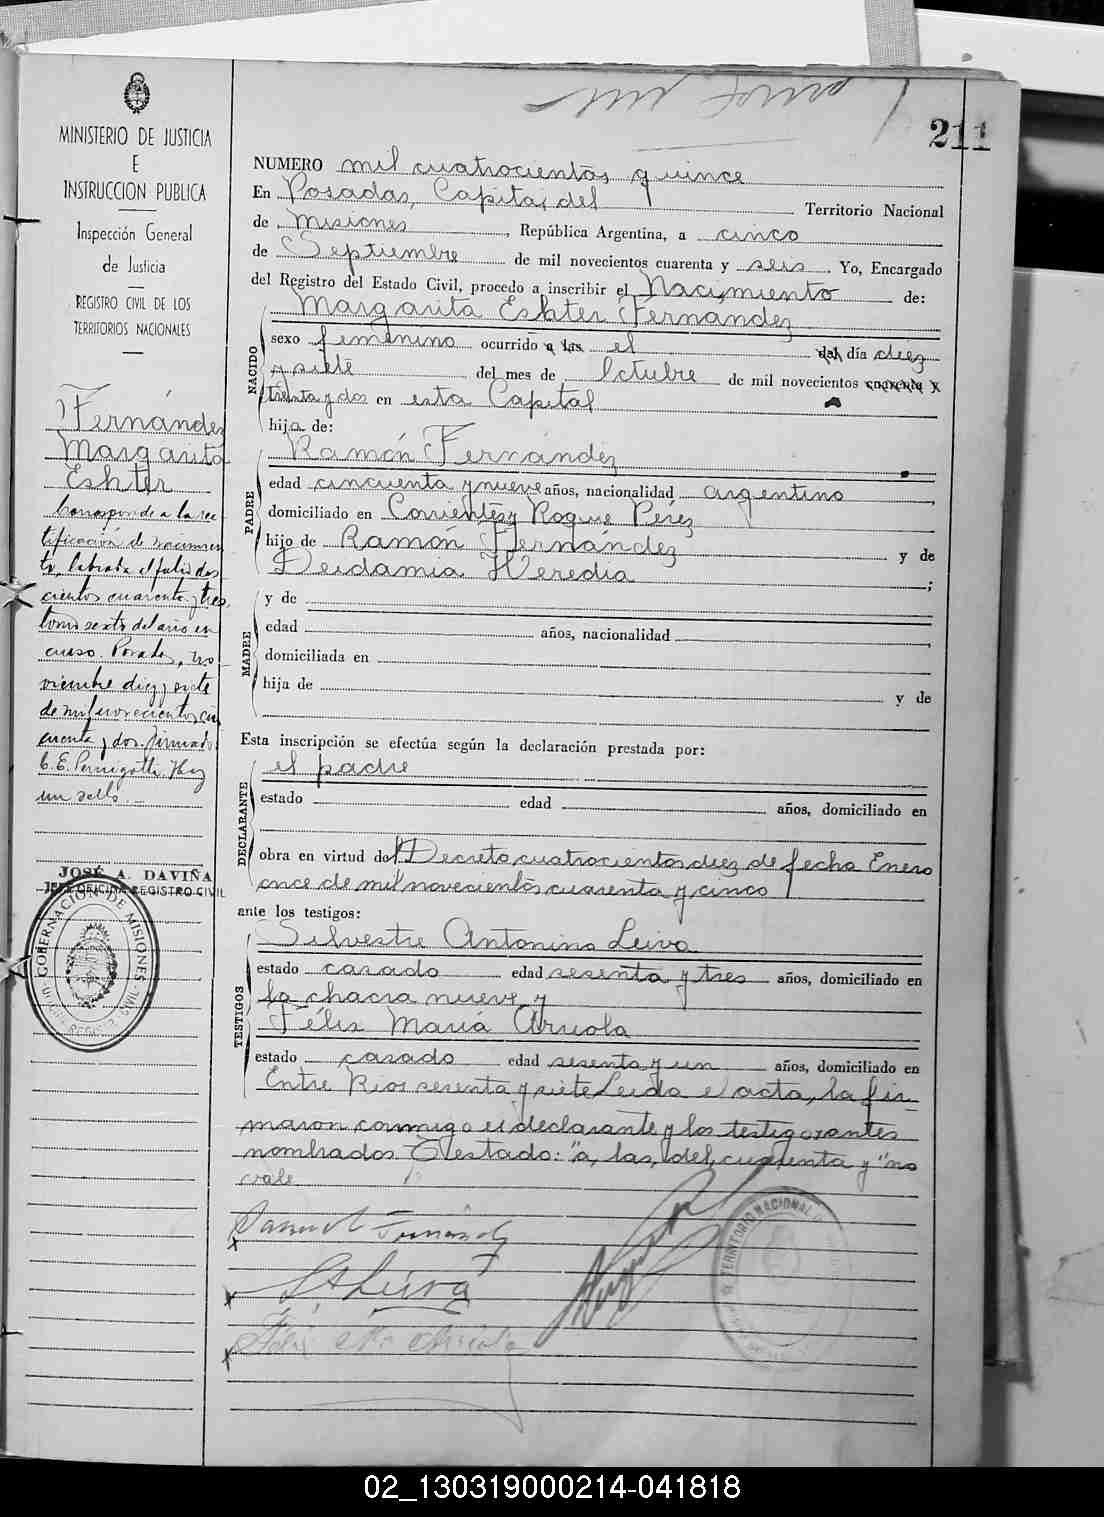 211
MINISTERIO DE JUSTICIA
E
INSTRUCCION PUBLICA
Inspección General
de Justicia
REGISTRO CIVIL DE LOS
TERRITORIOS NACIONALES
Fernández
Margarita
Eshter
Corresponde a la rec
tificación de nacimien
to, labrada al folio dos
cientos cuarenta y tres
tomo sexto del año en
curso. Posadas, no
viembre diez y siete
de mil novecientos cin
cuenta y dos. firmado
C. E. Pernigotti. Hay
un sello.
JOSÉ A. DAVIÑA
JEFE OFICINA REGISTRO CIVIL
GOBERNACIÓN DE MISIONES
NUMERO mil cuatrocientos quince
En Posadas, Capital del Territorio Nacional
de Misiones, República Argentina, a cinco
de Septiembre de mil novecientos cuarenta y seis. Yo, Encargado
del Registro del Estado Civil, procedo a inscribir el Nacimiento de:
Margarita Eshter Fernández
NACIDO
sexo femenino ocurrido a las el del día diez
y siete del mes de Octubre de mil novecientos cuarenta y
treinta y dos en esta Capital
hija de:
PADRE
Ramón Fernández
edad cincuenta y nueve años, nacionalidad argentino
domiciliado en Corrientes y Roque Pérez
hijo de Ramón Fernández y de
Deidamia Heredia;
MADRE
y de
edad años, nacionalidad
domiciliada en
hija de y de
Esta inscripción se efectúa según la declaración prestada por:
DECLARANTE
el padre
estado edad años, domiciliado en
obra en virtud del Decreto cuatrocientos diez de fecha Enero
once de mil novecientos cuarenta y cinco
ante los testigos:
TESTIGOS
Silvestre Antonino Leiva
estado casado edad sesenta y tres años, domiciliado en
la chacra nueve y
Félix María Arriola
estado casado edad sesenta y un años, domiciliado en
Entre Rios sesenta y siete Leida el acta, la fir
maron conmigo el declarante y los testigos antes
nombrados Testado: "a, las, del, cuarenta y" no
vale
TERRITORIO NACIONAL
02_130319000214-041818